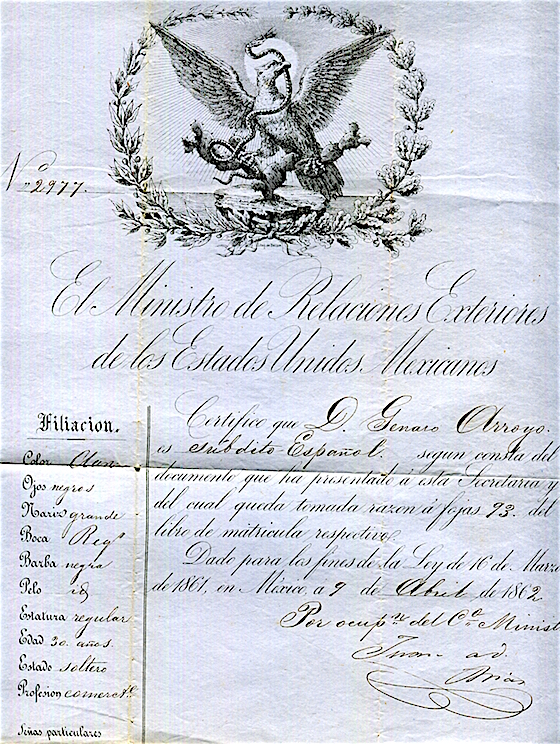 Nº 2977.
El Ministro de Relaciones Exteriores
de los Estados Unidos Mexicanos
Filiacion.
Color Claro
Ojos negros
Nariz grande
Boca Regr
Barba negra
Pelo id
Estatura regular
Edad 30 años.
Estado soltero
Profesión comercte
Señas particulares
Certifico que D. Genaro Arroyo.
es subdito Español. segun consta del
documento que ha presentado á esta Secretaria y
del cual queda tomada razon á fojas 93. del
libro de matricula respectivo.
Dado para los fines de la Ley de 16 de Marzo
de 1861, en México, a 9 de Abril de 1862
Por ocupn del Co Minist
Juan de D.
Arias